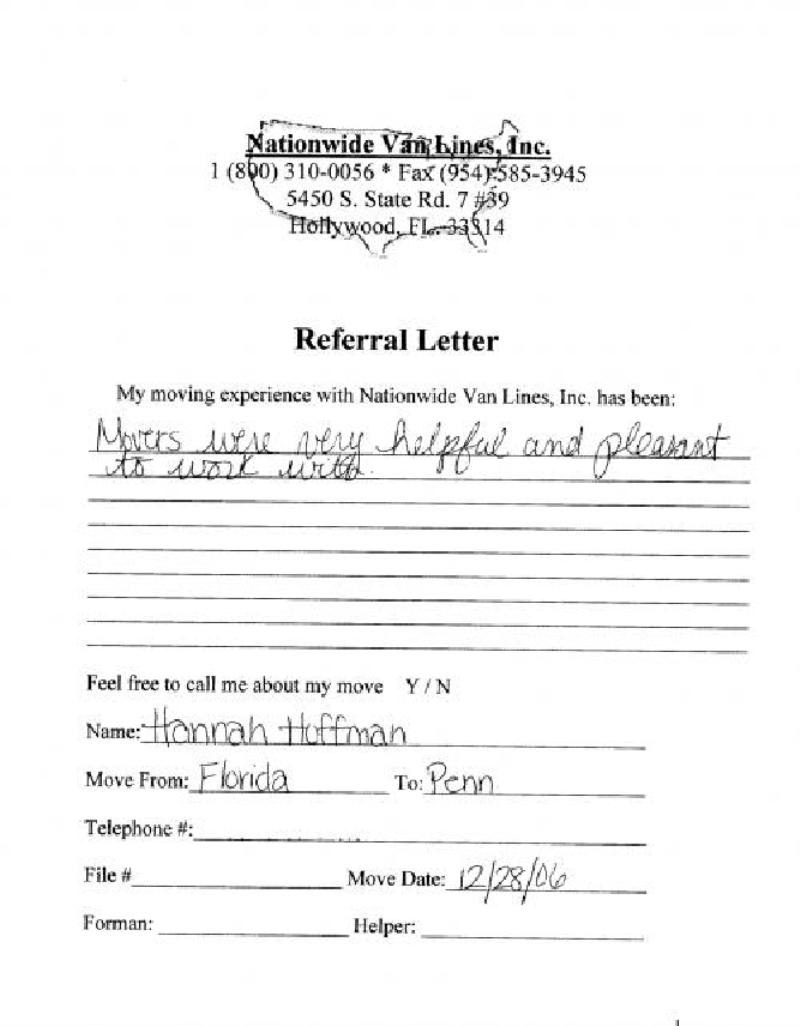 Nationwide Van Lines, Inc.
1 (800) 310-0056 * Fax (954) 585-3945
5450 S. State Rd. 7 #39
Hollywood, FL. 33314
Referral Letter
My moving experience with Nationwide Van Lines, Inc. has been:
Movers were very helpful and pleasant
to work with.
Feel free to call me about my move Y / N
Name: Hannah Hoffman
Move From: Florida To: Penn
Telephone #:
File # Move Date: 12/28/06
Forman: Helper: